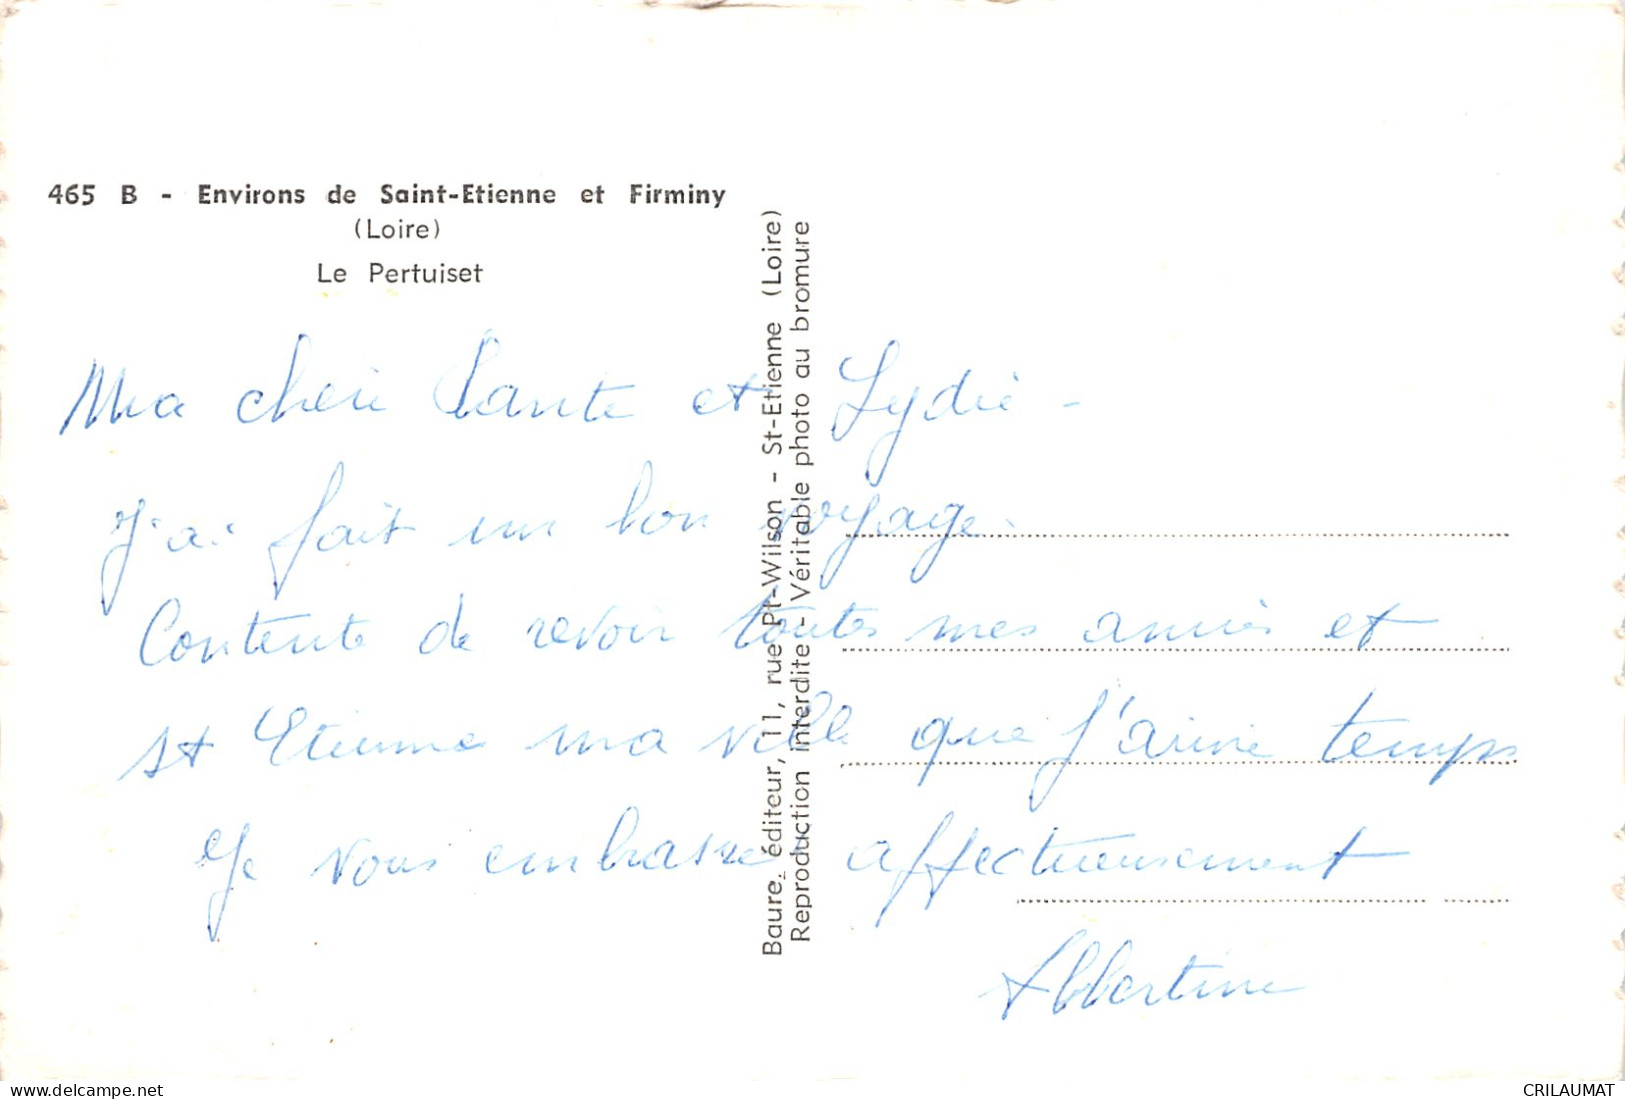 465 B - Environs de Saint-Etienne et Firminy
(Loire)
Le Pertuiset
Ma chère Tante et Lydie -
J'ai fait un bon voyage.
Contente de revoir toutes mes amies et
St Etienne ma ville que j'aime temps
Je vous embrasse affectueusement
Albertine
Baure, éditeur, 11, rue Pt-Wilson - St-Etienne (Loire)
Reproduction interdite - Véritable photo au bromure
delcampe.net
CRILAUMAT